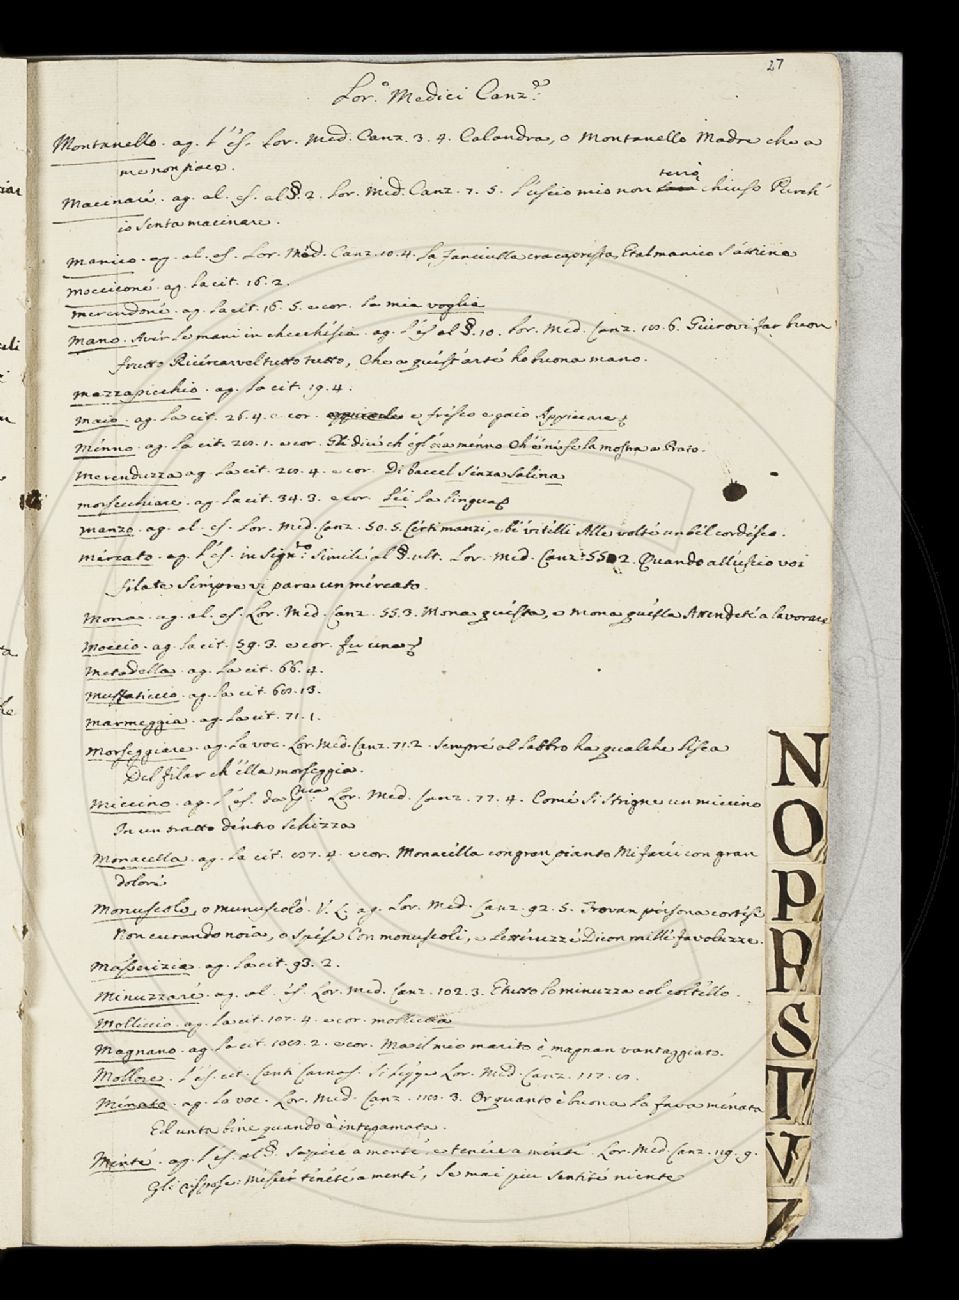 27
Lor.o Medici Canz.e
Montanello. ag. l'es. Lor. Med. Canz. 3. 4. Calandra, o Montanello Madre che a
me non piace.
Macinare. ag. al. es. al §. 2. Lor. Med. Canz. 7. 5. L'uscio mio non terrò chiuso Purch'
io senta macinare.
Manico. ag. al. es. Lor. Med. Canz. 10. 4. La fanciulla era capresta, Et al manico
Moccicone. ag. la cit. 16. 2.
Merendone. ag. la cit. 16. 5. e cor. la mia voglia
Mano. Aver le mani in checchesia. ag. l'es al §. 10. Lor. Med. Canz. 18. 6. far buon
frutto tutto tutto, Che a quest'arte ho buona mano.
Mazzapicchio. ag. la cit. 19. 4.
Maio. ag. la cit. 26. 4. e cor. e fresco e gaio Appiccare
Menno. ag. la cit. 28. 1. e cor. menno la mostra a Prato.
Merenduzza ag. la cit. 28. 4. e cor. Di baccel senza salina
Morsecchiare. ag. la cit. 34. 3. e cor. la lingua
Manzo. ag. al. es. Lor. Med. Canz. 50. 5. Certi manzi, e be' vitelli Alle volte un bel cordesco.
Mercato. ag. l'es. in sign.to simile al §. ult. Lor. Med. Canz. 55. 2. Quando all'uscio voi
filate Sempre vi pare un mercato.
Mona. ag. al. es. Lor. Med. Canz. 55. 3. Mona questa, e mona quella Attendete a lavorare
Moccio. ag. la cit. 59. 3. e cor. fu una
Metadella. ag. la cit. 66. 4.
Muffaticcio. ag. la cit. 68. 13.
Marmeggia. ag. la cit. 71. 1.
Morseggiare. ag. la voc. Lor. Med. Canz. 71. 2. Sempre al labbro ha qualche lisca
Del filar ch'ella morseggia.
Miccino. ag. l'es. Lor. Med. Canz. 77. 4. Come si strigne un miccino
In un tratto dentro schizza
Monacella. ag. la cit. 87. 4. e cor. Monacella con gran pianto Mi con gran
dolore
Monuscolo, o munuscolo. V. L. ag. Lor. Med. Canz. 92. 5. Trovan persona cortese
Non curando noia, o spese Con monuscoli, e letteruzze Dicon mille favoluzze.
Masserizia. ag. la cit. 93. 2.
Minuzzare. ag. al. es. Lor. Med. Canz. 102. 3. E tutto lo minuzza col coltello.
Molliccio. ag. la cit. 107. 4. e cor. molliccia
Magnano. ag. la cit. 108. 2. e cor. Ma il mio marito è magnan vantaggiato.
Mollore. l'es. cit. Canti Carnas. si legge Lor. Med. Canz. 117. 8.
Menato. ag. la voc. Lor. Med. Canz. 118. 3. Or quanto è buona la fava menata
Ed unta bene quando è integamata.
Mente. ag. l'es. al §. Sapere a mente, e tenere a mente. Lor. Med. Canz. 119. 9.
Gli rispose: Messer tenete a mente, Se mai più sentite niente
N
O
P
R
S
T
V
Z